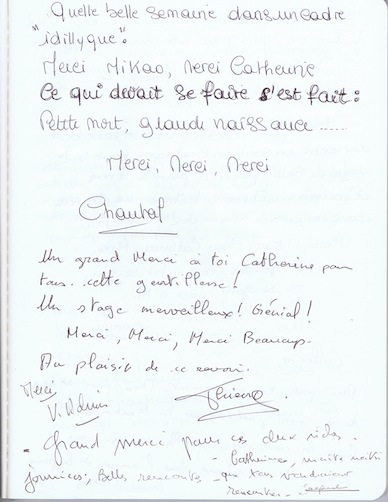 Quelle belle semaine dans un cadre
"idillyque".
Merci Mikao, Merci Catherine
Ce qui devait se faire s'est fait :
Petite mort, grande naissance ......
Merci, Merci, Merci
Chantal
Un grand Merci à toi Catherine pour
tous cette gentillesse !
Un stage merveilleux ! Génial !
Merci, Merci, Merci Beaucoup
Au plaisir de ce revoir.
Merci,
Grand merci pour ces deux riches
journées, Belles rencontres
Catherine,
rencontres